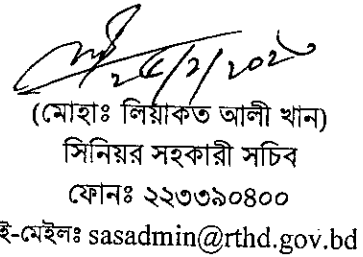 (মোহাঃ লিয়াকত আলী খান)
সিনিয়র সহকারী সচিব
ফোনঃ ২২৩৩৯০৪০০
ই-মেইলঃ sasadmin@rthd.gov.bd